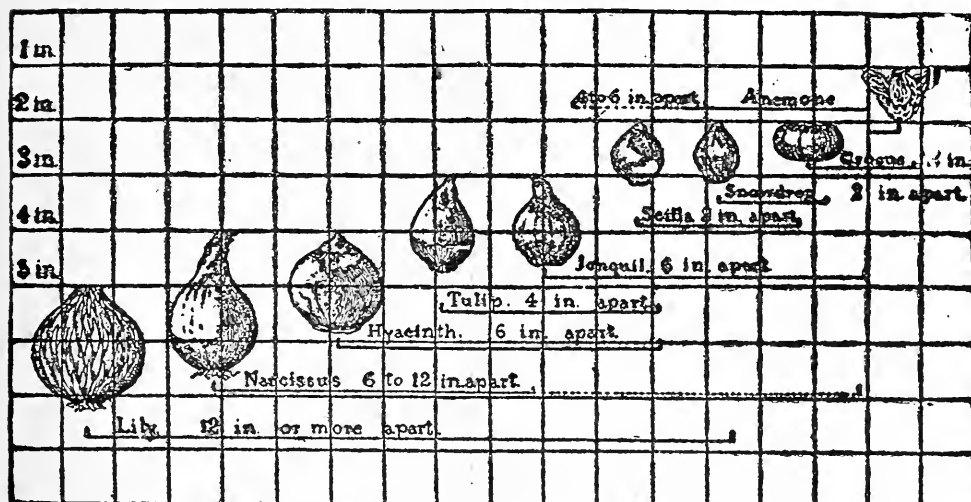 1 in.
2 in.
4 to 6 in. apart. Anemone
3 in.
Crocus.
Snowdrop 2 in apart.
4 in.
Scilla 2 in. apart.
5 in.
Jonquil. 6 in. apart
Tulip. 4 in. apart.
Hyacinth. 6 in. apart
Narcissus 6 to 12 in. apart.
Lily. 12 in. or more apart.